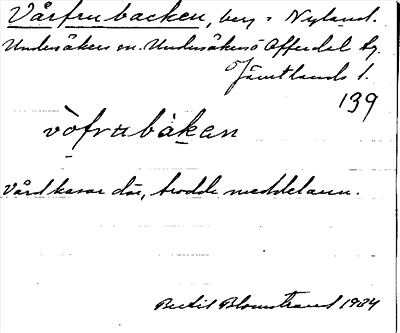 Vårfrubacken, berg i Nyland.
Undersåkers sn. Undersåkers o Offerdal tg.
Jämtlands l.
139
vòfrubàken
Vårdkasar där, trodde meddelaren.
Bertil Blomstrand 1934